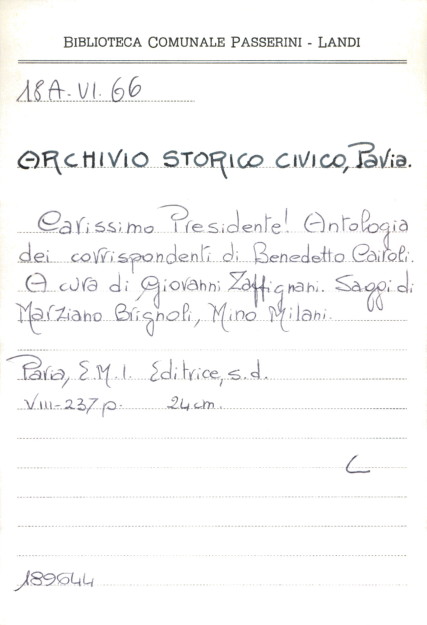 BIBLIOTECA COMUNALE PASSERINI - LANDI
18A.VI.66
ARCHIVIO STORICO CIVICO, Pavia.
Carissimo Presidente! Antologia
dei corrispondenti di Benedetto Cairoli.
A cura di Giovanni Zaffignani. Saggi di
Marziano Brignoli, Mino Milani.
Pavia, E.M.I. Editrice, s.d.
VIII-237 p. 24 cm.
C
189644